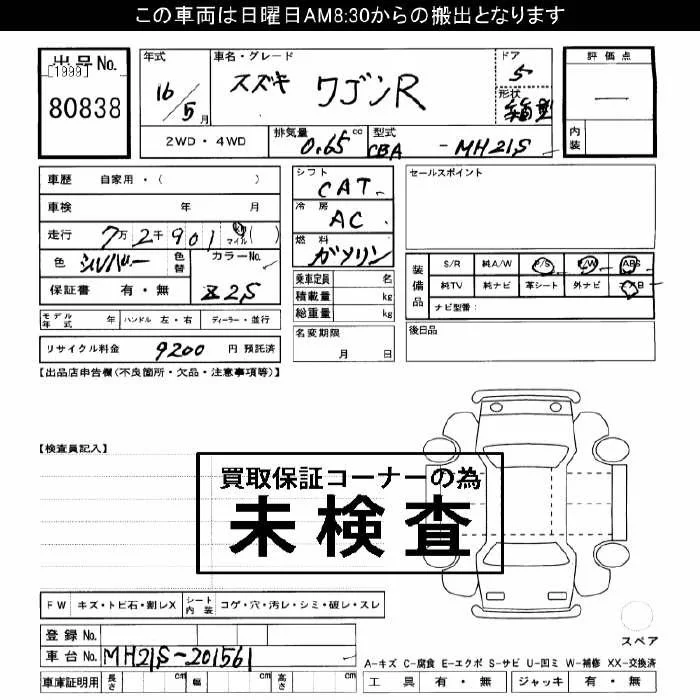 この車両は日曜日AM8:30からの搬出となります
出品No.
[1999]
80838
年式
16/5月
車名・グレード
スズキ ワゴンR
ドア
5
形状
箱型
評価点
—
内装
2WD・4WD
排気量
0.65cc
型式
CBA - MH21S
車歴 自家用・( )
車検 年 月
走行 7万2千901 km マイル( )
色 シルバー 色替
カラーNo.
Z2S
保証書 有・無
モデル年式 年 ハンドル 左・右 ディーラー・並行
リサイクル料金 9200 円 預託済
シフト
CAT
冷房
AC
燃料
ガソリン
乗車定員 名
積載量 kg
総重量 kg
名変期限
月 日
セールスポイント
装備品
S/R 純A/W P/S P/W ABS
純TV 純ナビ 革シート 外ナビ エアB
ナビ型番:
後日品
【出品店申告欄(不良箇所・欠品・注意事項等)】
【検査員記入】
買取保証コーナーの為
未検査
FW キズ・トビ石・割レX シート内装 コゲ・穴・汚レ・シミ・破レ・スレ
登録No.
車台No. MH21S-201561
車庫証明用 長さ cm 幅 cm 高さ cm
スペア
A-キズ C-腐食 E-エクボ S-サビ U-凹ミ W-補修 XX-交換済
工具 有・無 ジャッキ 有・無